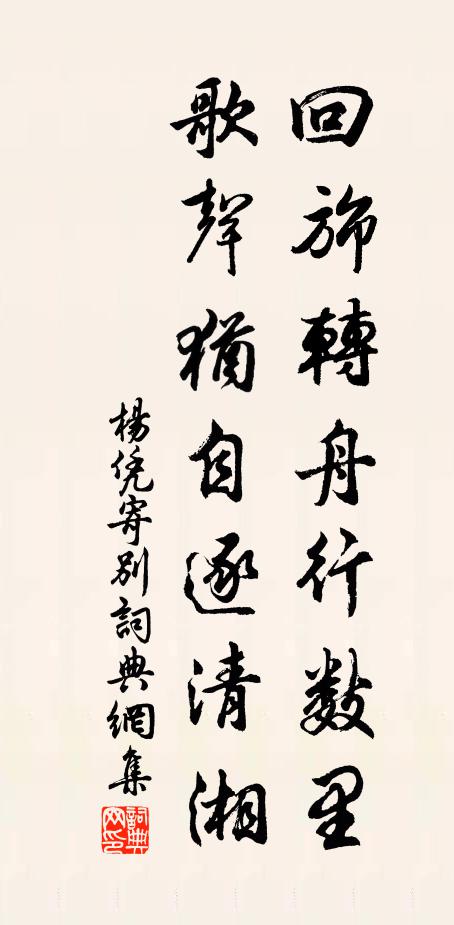 回旆轉舟行數里
歌聲猶自逐清湘
楊凭寄別詞典網集
詞典網印